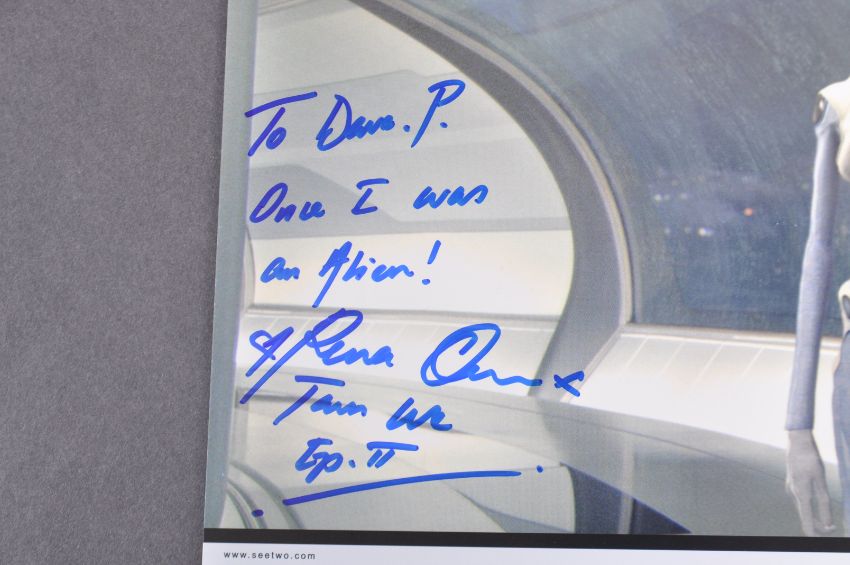 To Dave. P.
Once I was
an Alien!
Rena Owen x
Taun We
Ep. II
www.seetwo.com